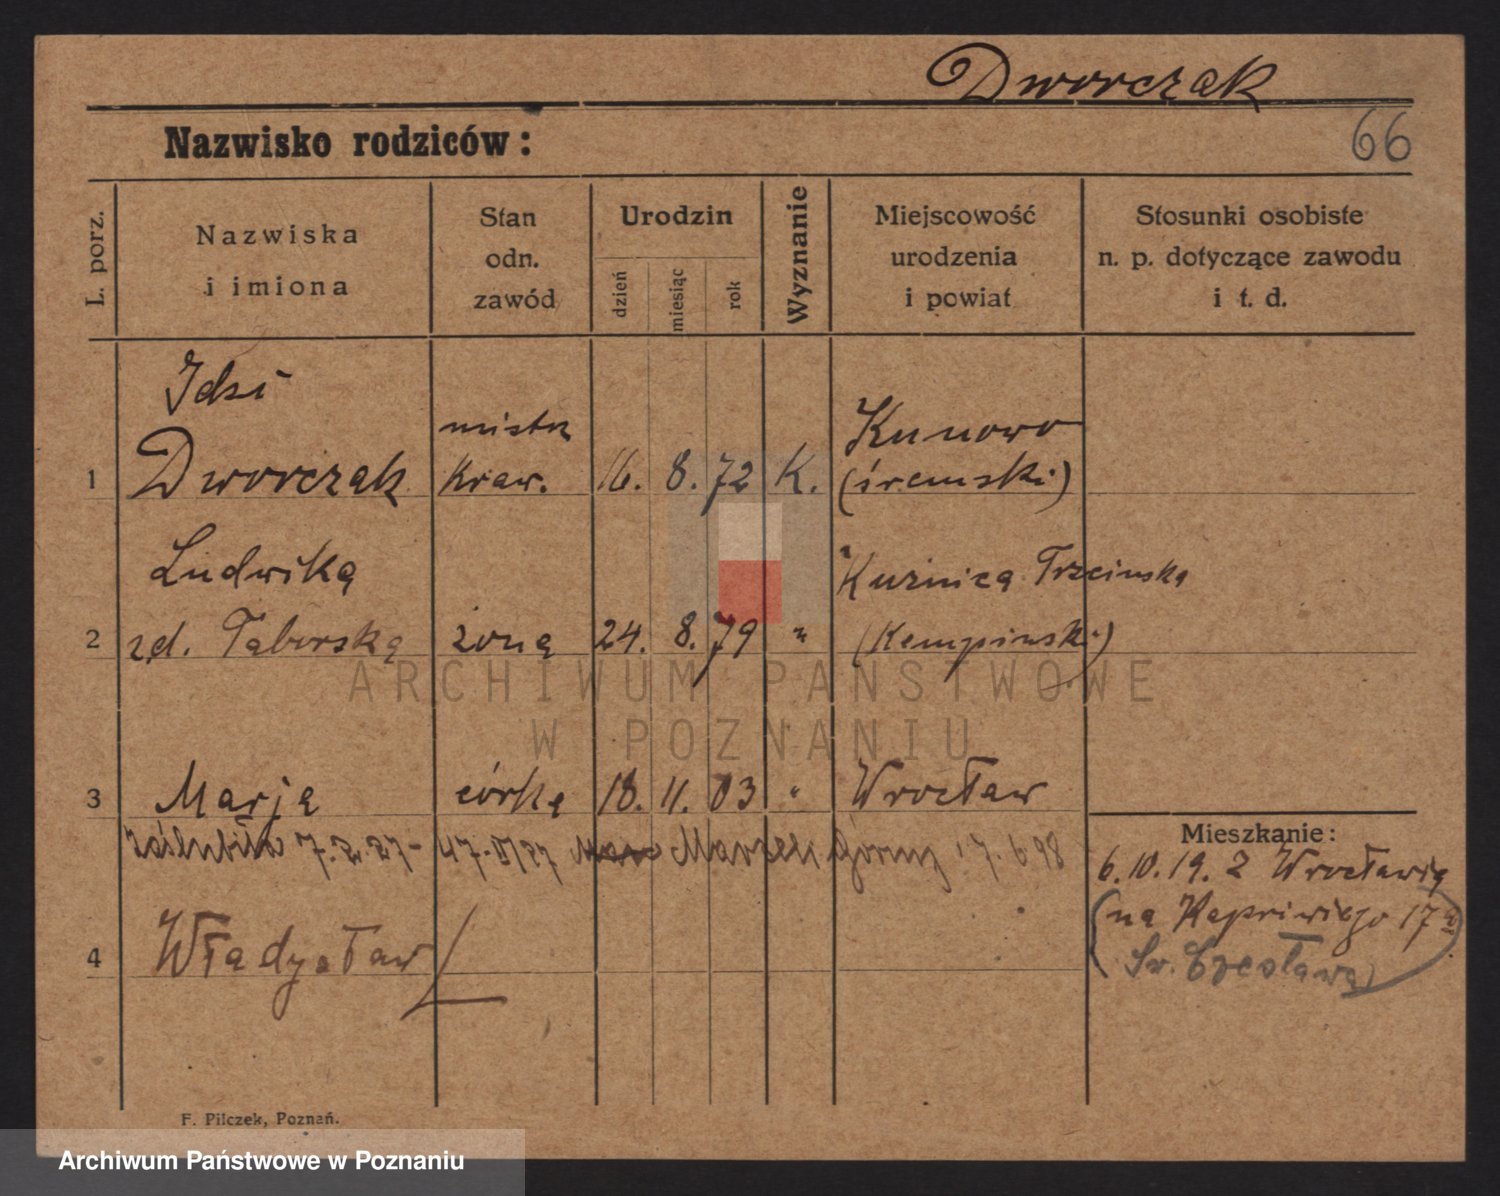 Dworczak
Nazwisko rodziców:
66
L. porz.
Nazwiska
i imiona
Stan
odn.
zawód
Urodzin
dzień
miesiąc
rok
Wyznanie
Miejscowość
urodzenia
i powiat
Stosunki osobiste
n. p. dotyczące zawodu
i t. d.
Idzi
mistrz
Kunowo
1 Dworczak kraw. 16. 8. 72 K. (śremski)
Ludwika
Kuźnica Trzcińska
2 zd. Taborska żona 24. 8. 79 " (Kempiński)
ARCHIWUM PAŃSTWOWE
W POZNANIU
3 Marja córka 18. 11. 03 " Wrocław
zaślubiła 7. 2. 27 - Marszek Górny 7. 6 98
Mieszkanie:
6.10.19. z Wrocławia
(na Kapriwiego 17a)
Św. Czesława
4 Władysław
F. Pilczek, Poznań.
Archiwum Państwowe w Poznaniu